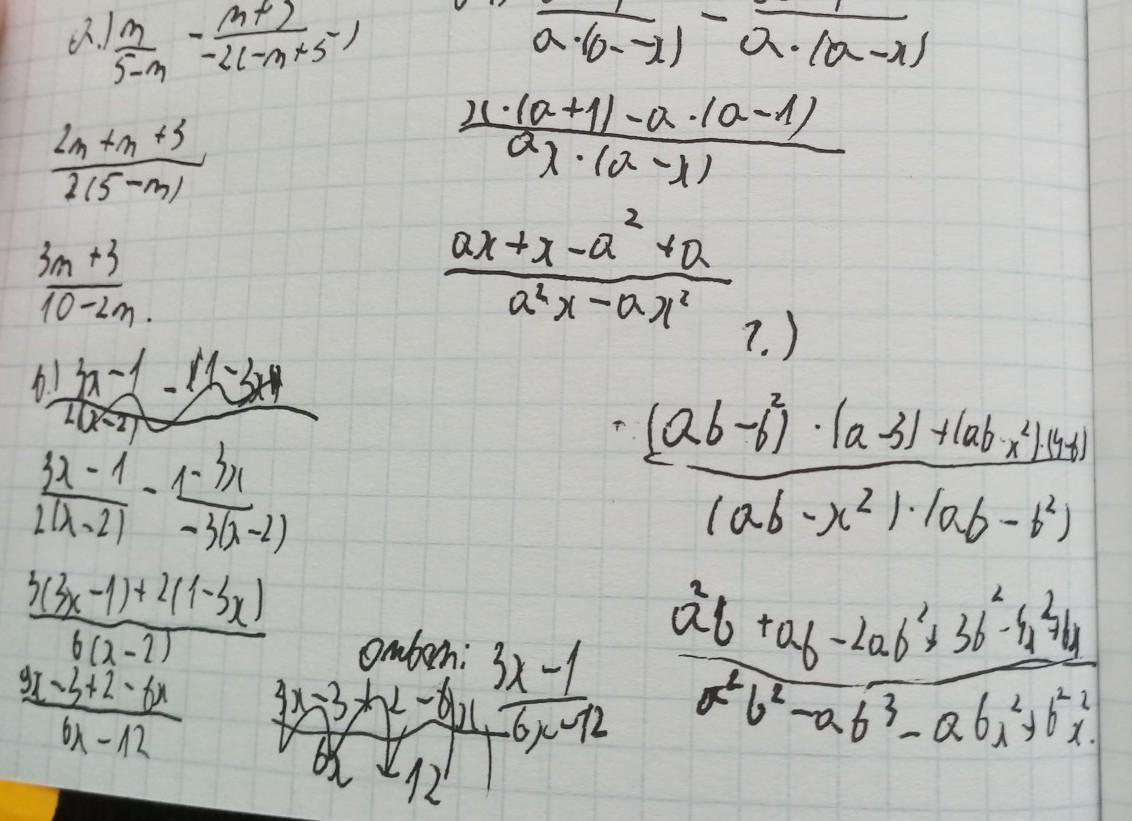 a.) m/(5-m) - (m+3)/(-2(-m+5))
(2m+m+3)/(2(5-m))
(3m+3)/(10-2m).
в.) (3x-1)/(2(x-2)) - (1-3x)
(3x-1)/(2(x-2)) - (1-3x)/(-3(x-2))
(3(3x-1)+2(1-3x))/(6(x-2))
(9x-3+2-6x)/(6x-12)
Ответ: (3x-1)/(6x-12)
a·(a-x) - a·(a-x)
(x·(a+1)-a·(a-1))/(ax·(a-x))
(ax+x-a²+a)/(a²x-ax²)
г.)
((ab-b²)·(a-3)+(ab-x²)·(4-b))/((ab-x²)·(ab-b²))
(a²b+ab-2ab²+3b²-4x²+bx)/(a²b²-ab³-abx²+b²x²).